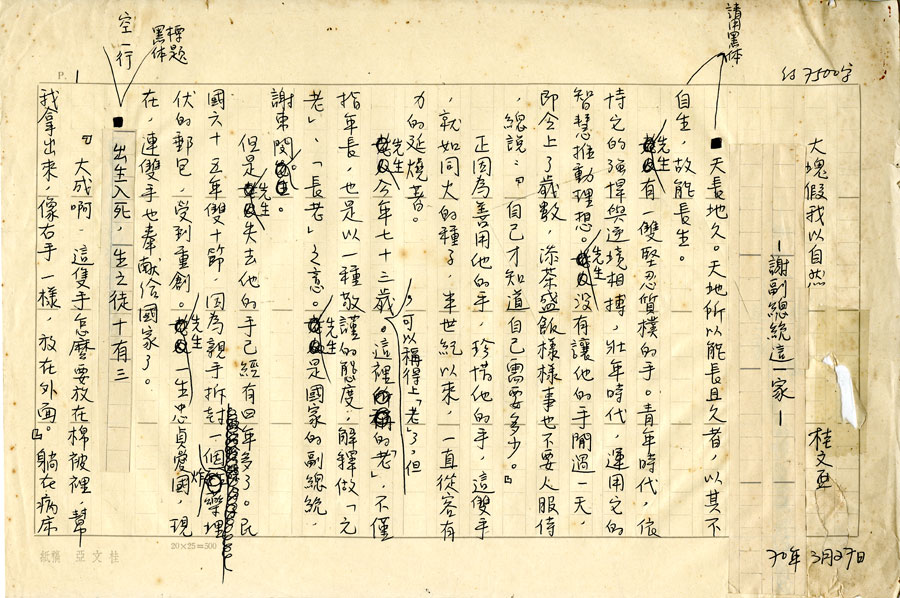 約7500字
大塊假我以自然
桂文亞
—謝副總統這一家—
70年3月27日
請用黑体
■天長地久。天地所以能長且久者，以其不
自生，故能長生。
先生有一雙堅忍質樸的手。青年時代，依
恃它的強悍與逆境相搏，壯年時代，運用它的
智慧推動理想。先生沒有讓他的手閒過一天，
即令上了歲數，添茶盛飯樣樣事也不要人服侍
，總說：『自己才知道自己需要多少。』
正因為善用他的手，珍惜他的手，這雙手
，就如同火的種子，半世紀以來，一直從容有
力的延燒著。
先生今年七十三歲，可以稱得上「老」了，但
。這裡的「老」，不僅
指年長，也是以一種敬謹的態度，解釋做「元
老」、「長老」之意。先生是國家的副總統，
謝東閔。
但是先生失去他的手已經有四年多了。民
國六十五年雙十節，因為親手拆封一個炸藥埋
伏的郵包，受到重創。先生一生忠貞愛國，現
在，連雙手也奉獻給國家了。
空一行
標題黑体
■出生入死，生之徒十有三
『大成啊，這隻手怎麼要放在棉被裡，幫
我拿出來，像右手一樣，放在外面。』躺在病床
P. 1
20×25=500
桂文亞 稿紙